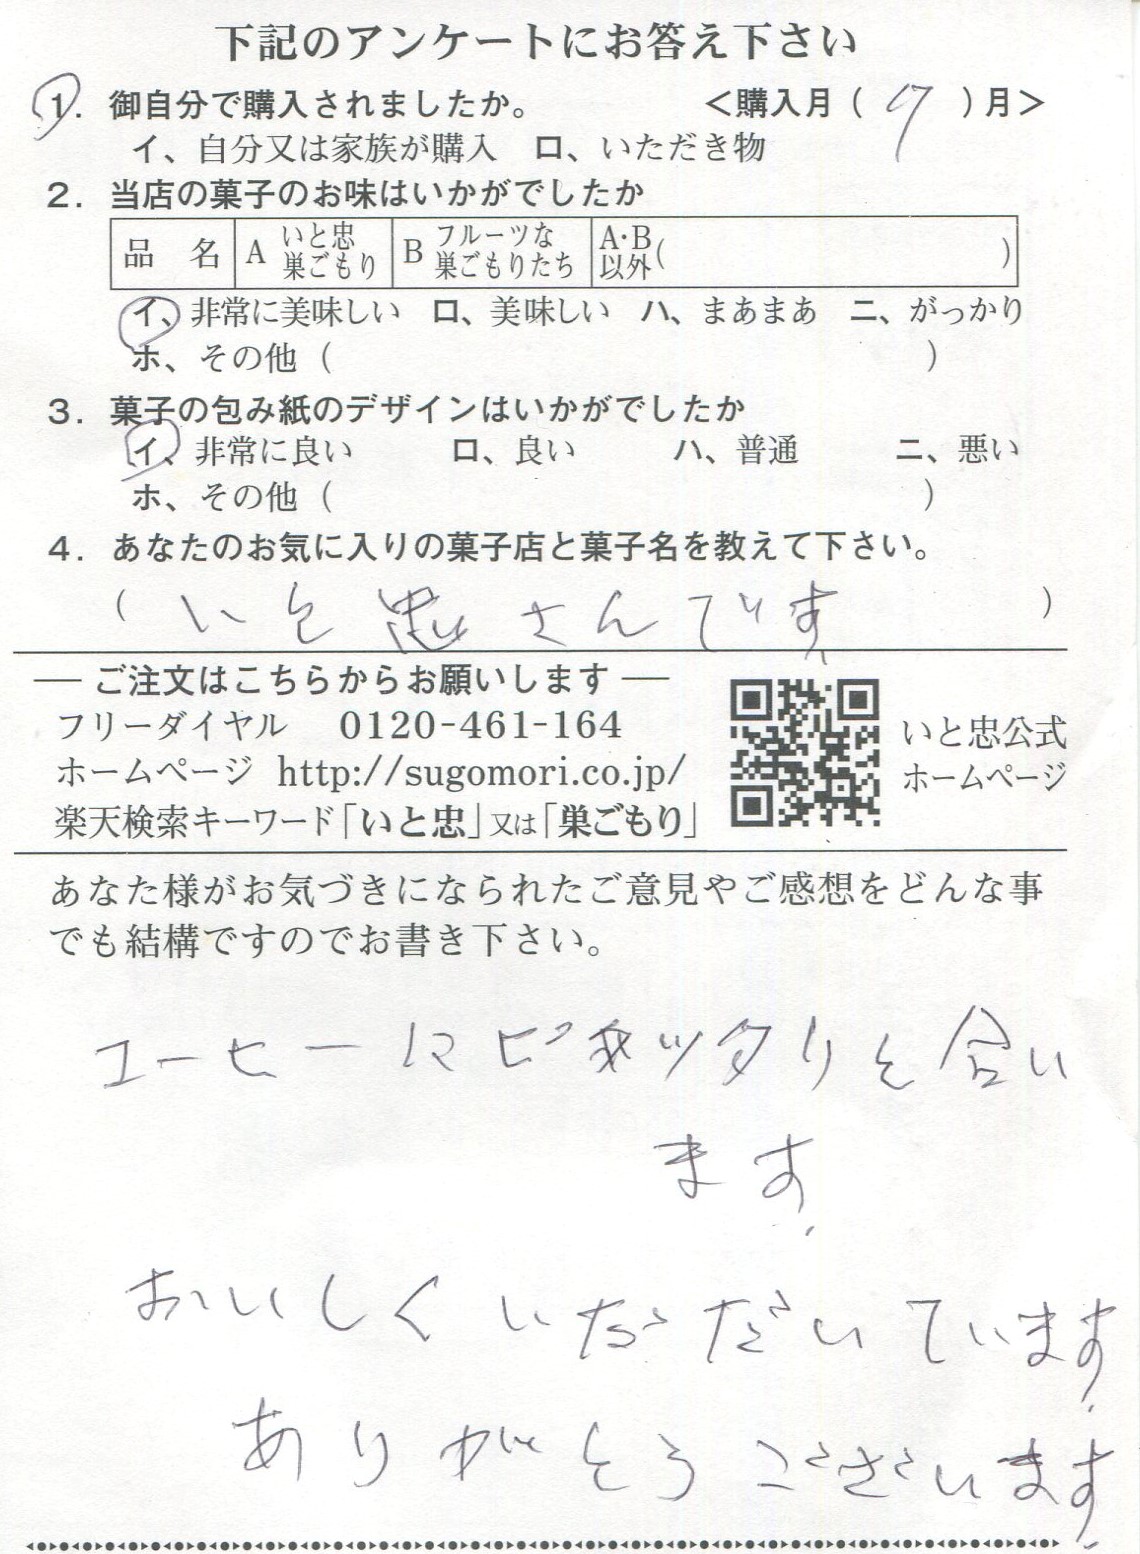 下記のアンケートにお答え下さい
1. 御自分で購入されましたか。 <購入月( 9 )月>
イ、自分又は家族が購入 ロ、いただき物
2. 当店の菓子のお味はいかがでしたか
品 名 A いと忠巣ごもり B フルーツな巣ごもりたち A・B以外( )
イ、非常に美味しい ロ、美味しい ハ、まあまあ ニ、がっかり
ホ、その他( )
3. 菓子の包み紙のデザインはいかがでしたか
イ、非常に良い ロ、良い ハ、普通 ニ、悪い
ホ、その他( )
4. あなたのお気に入りの菓子店と菓子名を教えて下さい。
( いと忠さんです )
― ご注文はこちらからお願いします ―
フリーダイヤル 0120-461-164
ホームページ http://sugomori.co.jp/
楽天検索キーワード「いと忠」又は「巣ごもり」
いと忠公式
ホームページ
あなた様がお気づきになられたご意見やご感想をどんな事
でも結構ですのでお書き下さい。
コーヒーにピッタリと合い
ます、
おいしくいただいています、
ありがとうございます、